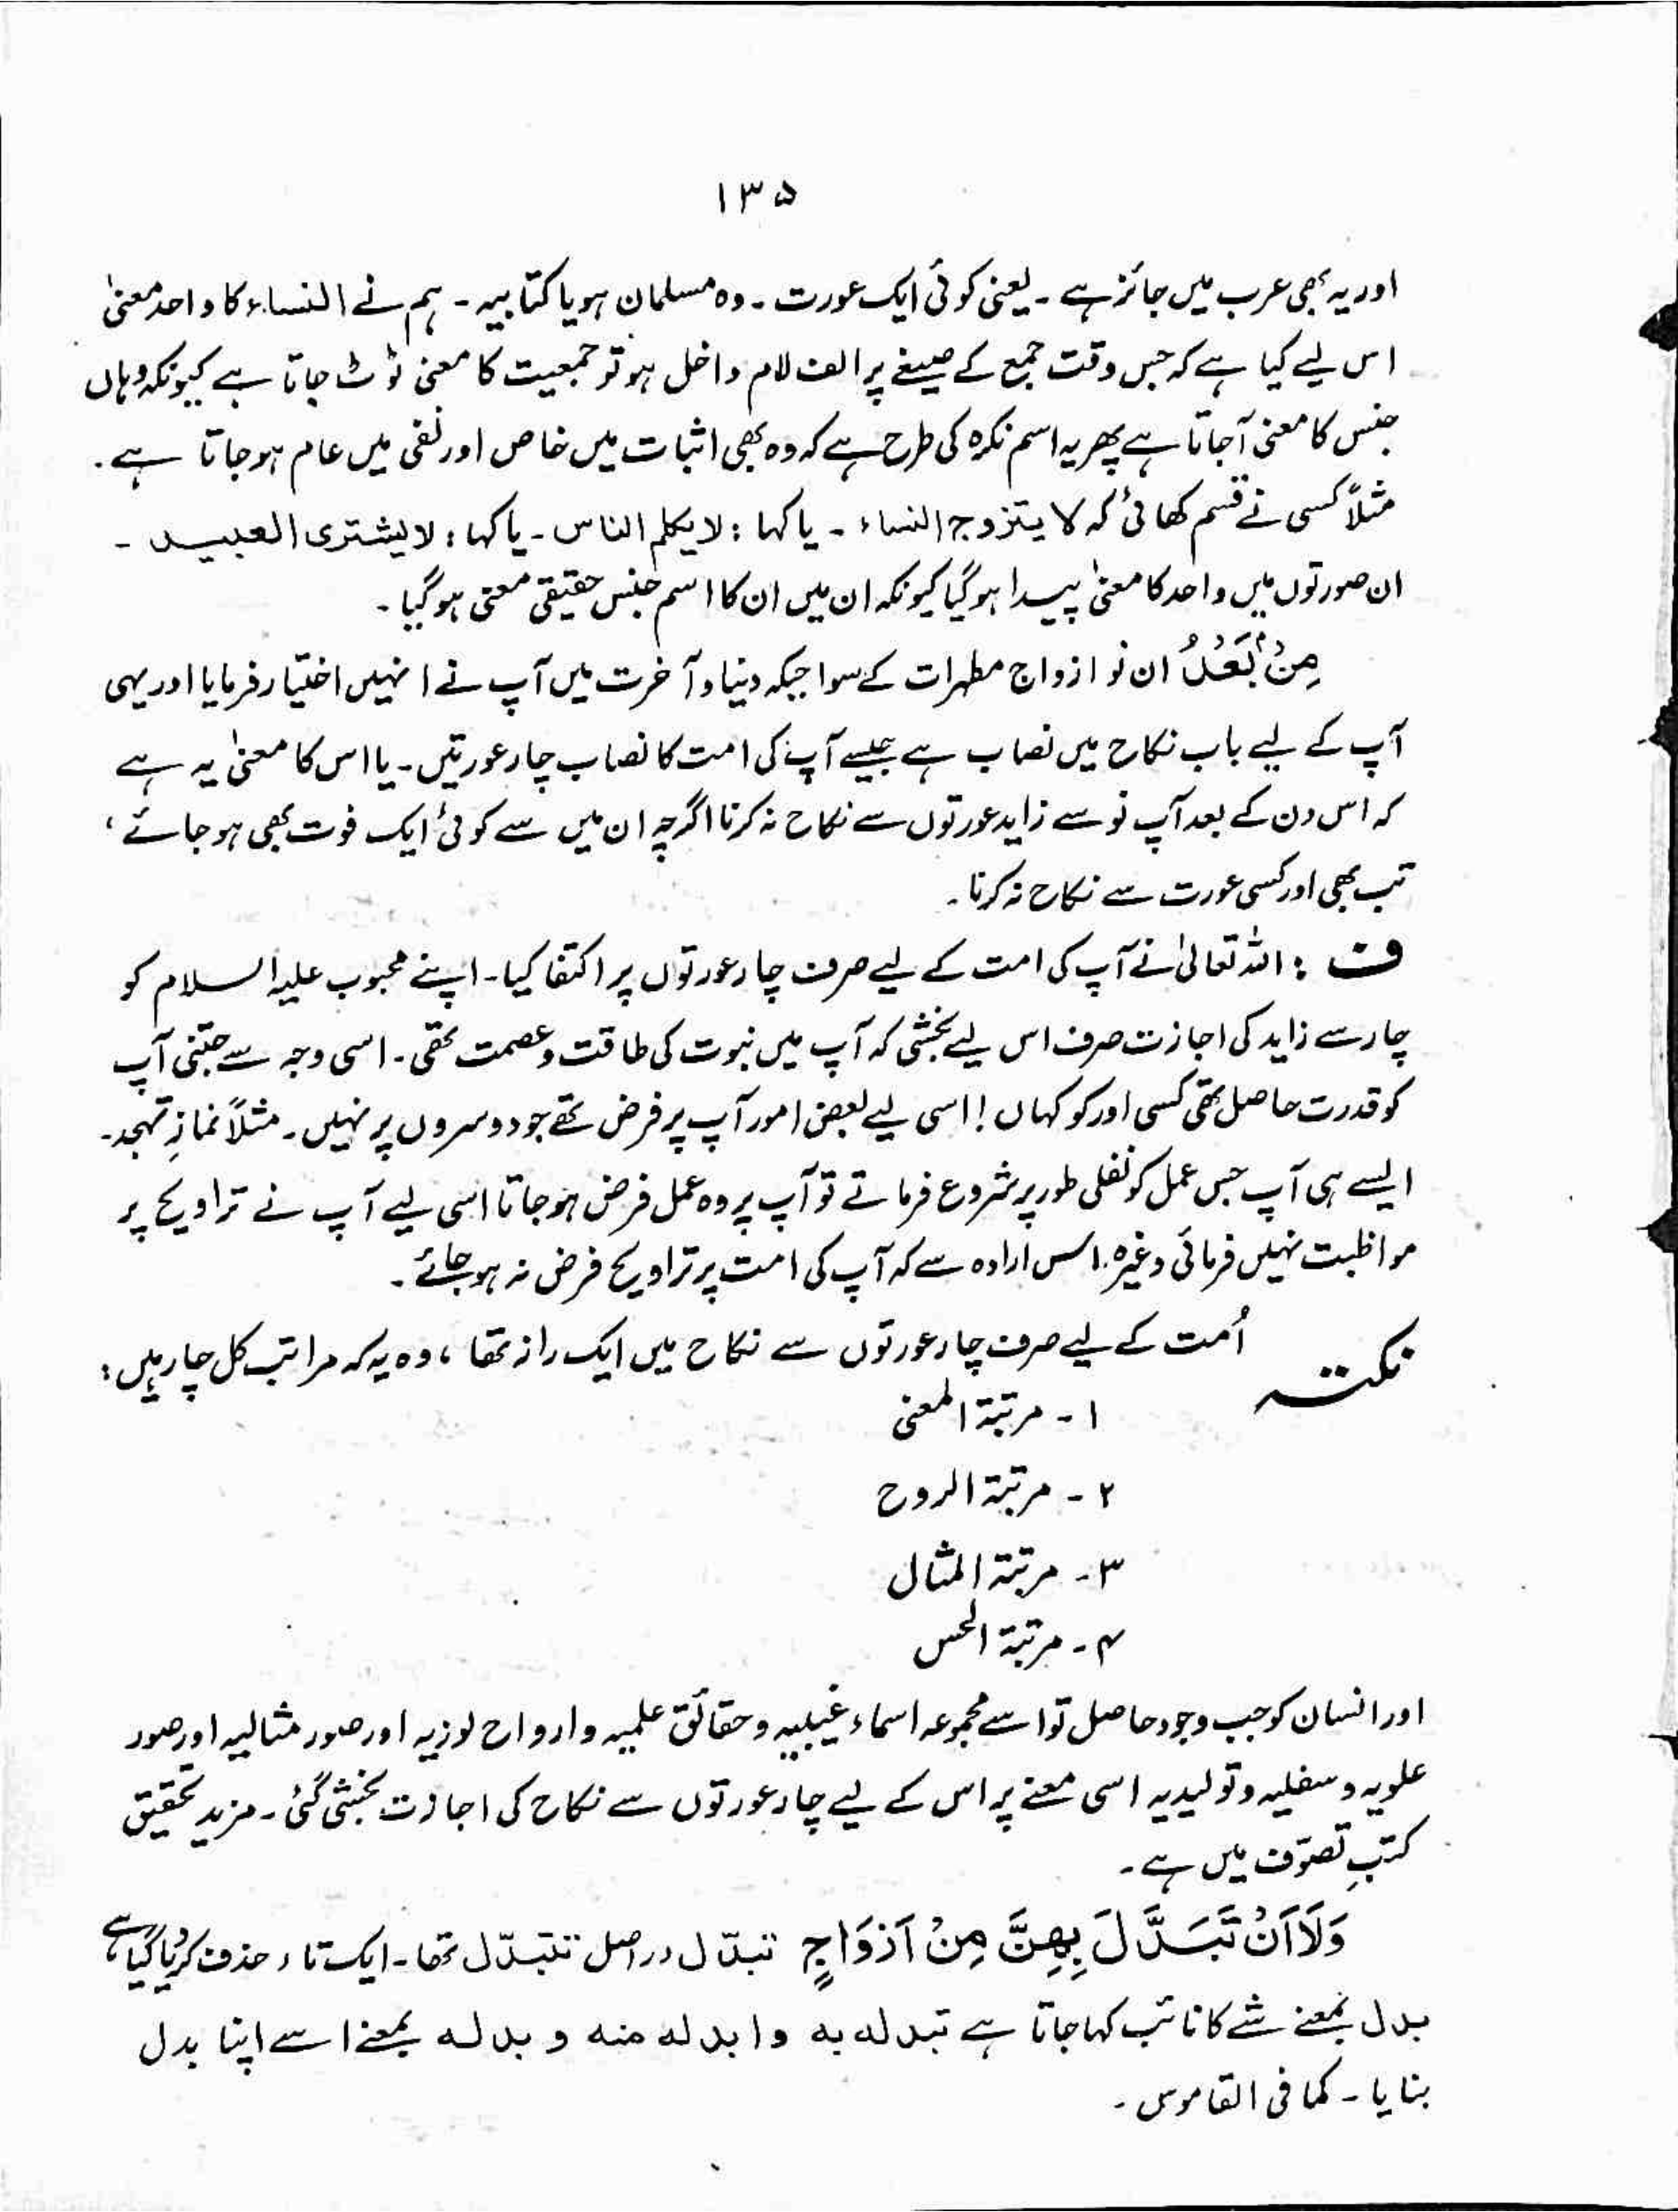 ۱۳۵
اور یہ بھی عرب میں جائز ہے ۔ یعنی کوئی ایک عورت ۔ وہ مسلمان ہو یا کتابیہ ۔ ہم نے النساء کا واحد معنیٰ
اس لیے کیا ہے کہ جس وقت جمع کے صیغے پر الف لام داخل ہو تو جمعیت کا معنی ٹوٹ جاتا ہے کیونکہ وہاں
جنس کا معنی آجاتا ہے پھر یہ اسم نکرہ کی طرح ہے کہ وہ بھی اثبات میں خاص اور نفی میں عام ہو جاتا ہے ۔
مثلاً کسی نے قسم کھائی کہ لا یتزوج النساء ۔ یا کہا : لا یکلم الناس ۔ یا کہا : لا یشتری العبید ۔
ان صورتوں میں واحد کا معنیٰ پیدا ہو گیا کیونکہ ان میں ان کا اسم جنس حقیقی معنی ہو گیا ۔
مِنْۢ بَعْدُ ان نو ازواج مطہرات کے سوا جبکہ دنیا و آخرت میں آپ نے انہیں اختیار فرمایا اور یہی
آپ کے لیے باب نکاح میں نصاب ہے جیسے آپ کی امت کا نصاب چار عورتیں ۔ یا اس کا معنیٰ یہ ہے
کہ اس دن کے بعد آپ نو سے زاید عورتوں سے نکاح نہ کرنا اگرچہ ان میں سے کوئی ایک فوت بھی ہو جائے ،
تب بھی اور کسی عورت سے نکاح نہ کرنا ۔
ف : اللہ تعالیٰ نے آپ کی امت کے لیے صرف چار عورتوں پر اکتفا کیا ۔ اپنے محبوب علیہ السلام کو
چار سے زاید کی اجازت صرف اس لیے بخشی کہ آپ میں نبوت کی طاقت و عصمت تھی ۔ اسی وجہ سے جتنی آپ
کو قدرت حاصل تھی کسی اور کو کہاں ! اسی لیے بعض امور آپ پر فرض تھے جو دوسروں پر نہیں ۔ مثلاً نمازِ تہجد ۔
ایسے ہی آپ جس عمل کو نفلی طور پر شروع فرماتے تو آپ پر وہ عمل فرض ہو جاتا اسی لیے آپ نے تراویح پر
مواظبت نہیں فرمائی وغیرہ ۔ اس ارادہ سے کہ آپ کی امت پر تراویح فرض نہ ہو جائے ۔
نکتہ اُمت کے لیے صرف چار عورتوں سے نکاح میں ایک راز تھا ، وہ یہ کہ مراتب کل چار ہیں :
۱ ۔ مرتبۃ المعنی
۲ ۔ مرتبۃ الروح
۳ ۔ مرتبۃ المثال
۴ ۔ مرتبۃ الحس
اور انسان کو جب وجود حاصل تو اسے مجموعہ اسماء غیبیہ و حقائق علمیہ و ارواح نوریہ اور صور مثالیہ اور صور
علویہ و سفلیہ و تولیدیہ اسی معنے پر اس کے لیے چار عورتوں سے نکاح کی اجازت بخشی گئی ۔ مزید تحقیق
کتبِ تصوّف میں ہے ۔
وَلَآ اَنْ تَبَدَّلَ بِهِنَّ مِنْ اَزْوَاجٍ تبدّل دراصل تتبدّل تھا ۔ ایک تاء حذف کر دیا گیا ہے
بدل بمعنے شے کا نائب کہا جاتا ہے تبدله به وابدله منه و بدله بمعنے اسے اپنا بدل
بنایا ۔ کما فی القاموس ۔